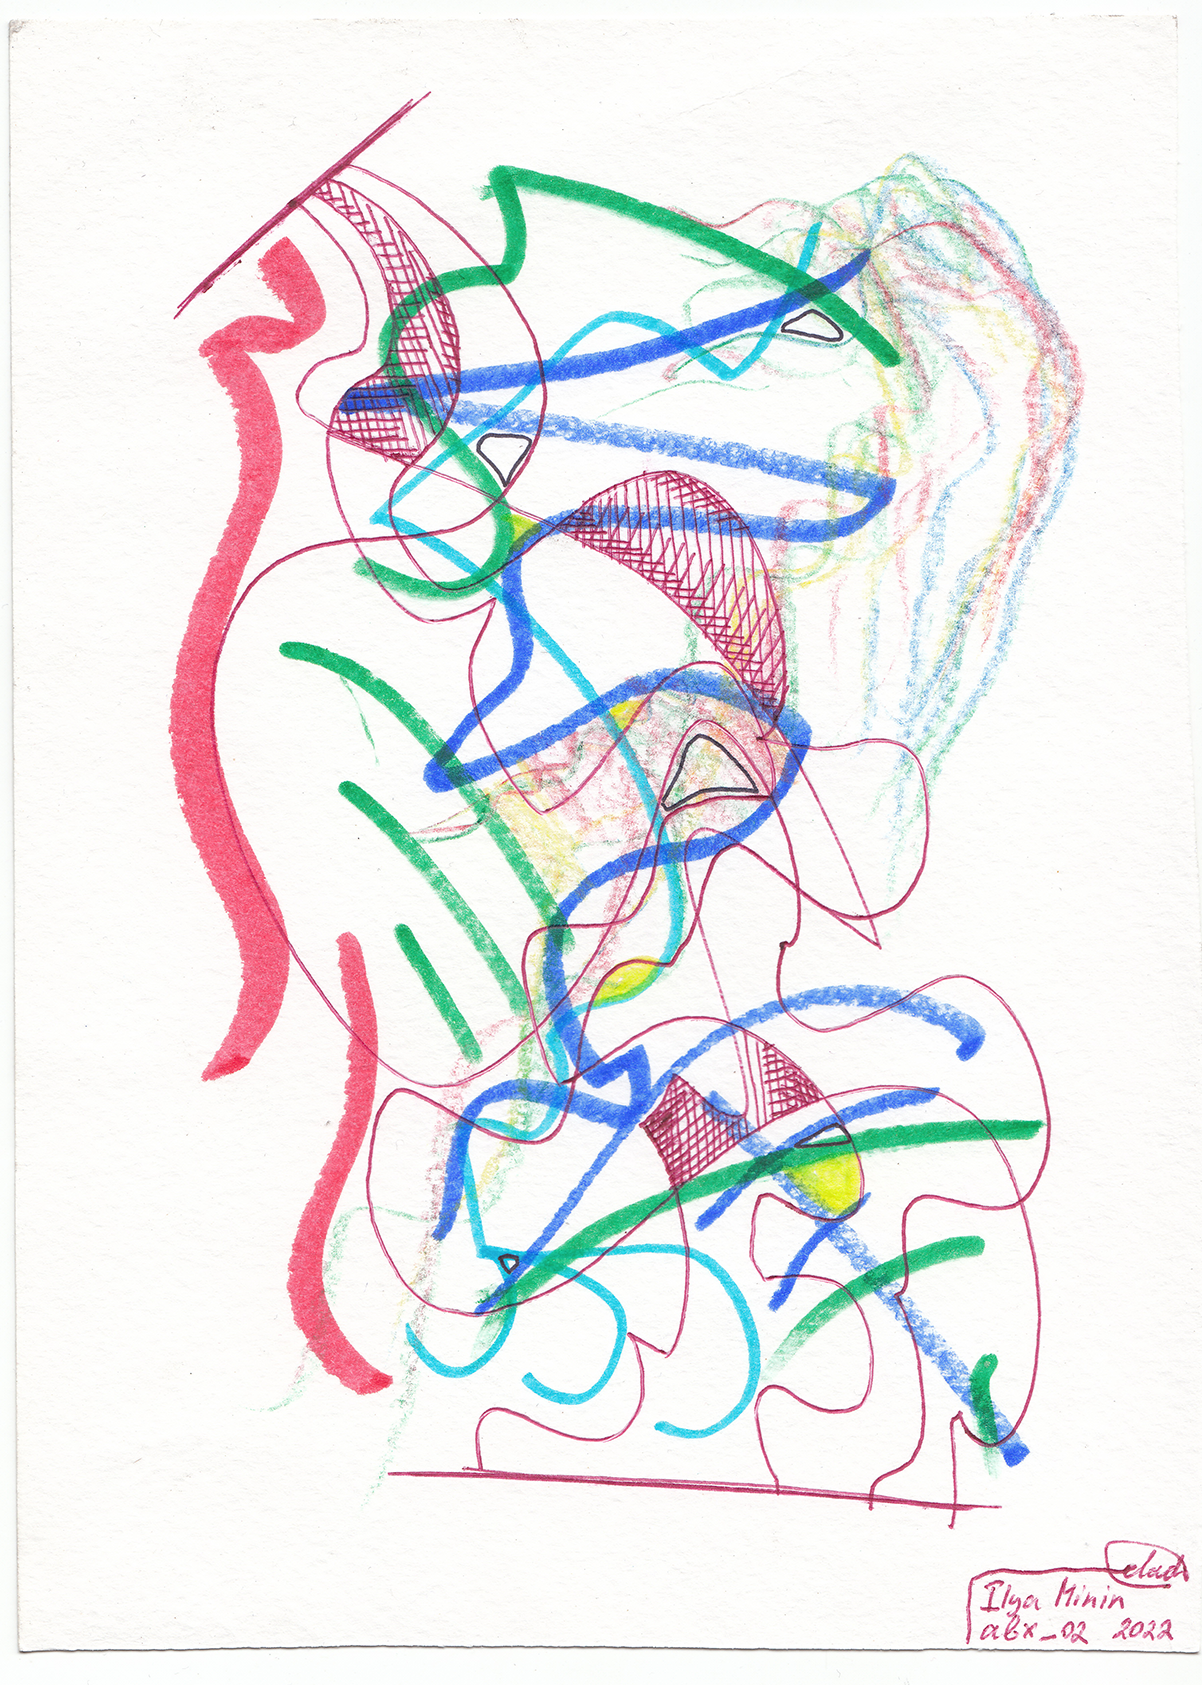 Ilya Minin
abx_02 2022